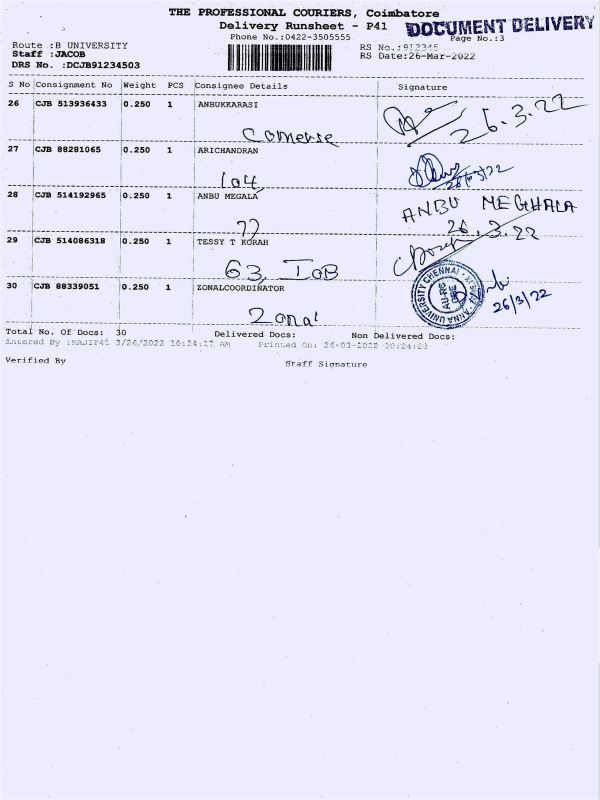 THE PROFESSIONAL COURIERS, Coimbatore
Delivery Runsheet - P41
DOCUMENT DELIVERY
Phone No.:0422-3505555
Page No.:3
Route :B UNIVERSITY
RS No.:912345
Staff :JACOB
RS Date:26-Mar-2022
DRS No. :DCJB91234503
S No Consignment No Weight PCS Consignee Details Signature
26 CJB 513936433 0.250 1 ANBUKKARASI
26.3.22
27 CJB 88281065 0.250 1 ARICHANDRAN
104 26/03/22
28 CJB 514192965 0.250 1 ANBU MEGALA
ANBU MEGHALA
77 26.3.22
29 CJB 514086318 0.250 1 TESSY T KORAH
63, IOB
30 CJB 88339051 0.250 1 ZONALCOORDINATOR
ANNA UNIVERSITY CHENNAI
26/3/22
Zonal
Total No. Of Docs: 30 Delivered Docs: Non Delivered Docs:
Entered By :RAJIP41 3/26/2022 10:24:17 AM Printed On: 26-03-2022 10:24:23
Verified By Staff Signature